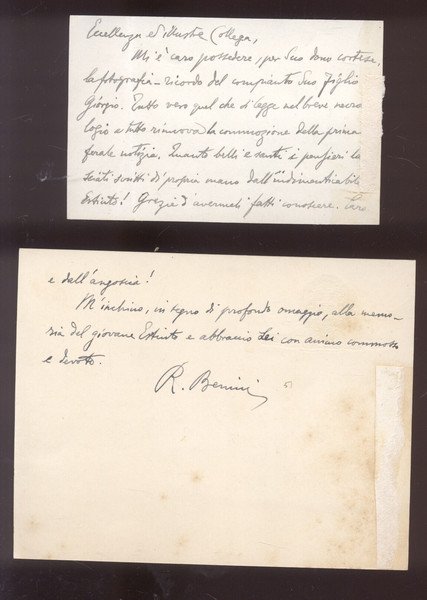 Eccellenza ed illustre Collega,
Mi è caro possedere, per Suo dono cortese,
la fotografia-ricordo del compianto Suo Figlio
Giorgio. Tutto vero quel che si legge nel breve necro
logio e tutto rinnova la commozione della prima
ferale notizia. Quanto belli e santi i pensieri la
sciati scritti di propria mano dall'indimenticabile
Estinto! Grazie d'avermeli fatti conoscere. Caro
e dall'angoscia!
M'inchino, in segno di profondo omaggio, alla memo-
ria del giovane Estinto e abbraccio Lei con animo commosso
e devoto.
R. Benini